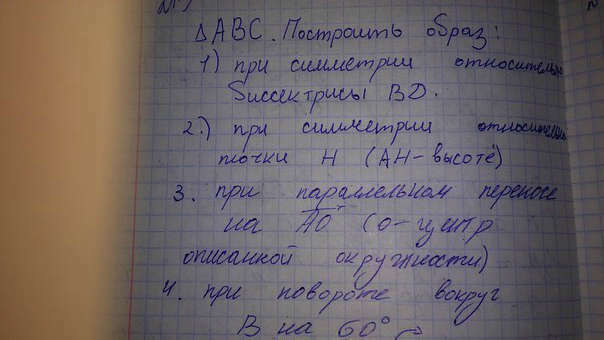 ΔАВС. Построить образ:
1) при симметрии относительно
биссектрисы BD.
2.) при симметрии относительно
точки Н (АН-высоте)
3. при параллельном переносе
на АО (О-центр
описанной окружности)
4. при повороте вокруг
В на 60°